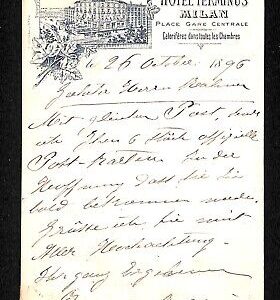 HOTEL TERMINUS
MILAN
PLACE GARE CENTRALE
Calorifères dans toutes les Chambres
26 Octobre 1896
Geehrte Herren
Mit gleicher Post, sende
ich Ihnen 6 Stück officielle
Post-Karten in der
Hoffnung dass Sie sie
bald bekommen werde.
Grüsse ich Sie mit
Aller Hochachtung
Ihr ganz Ergebener